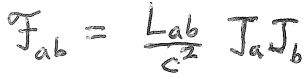 ℱ_ab = L_ab/c² J_a J_b